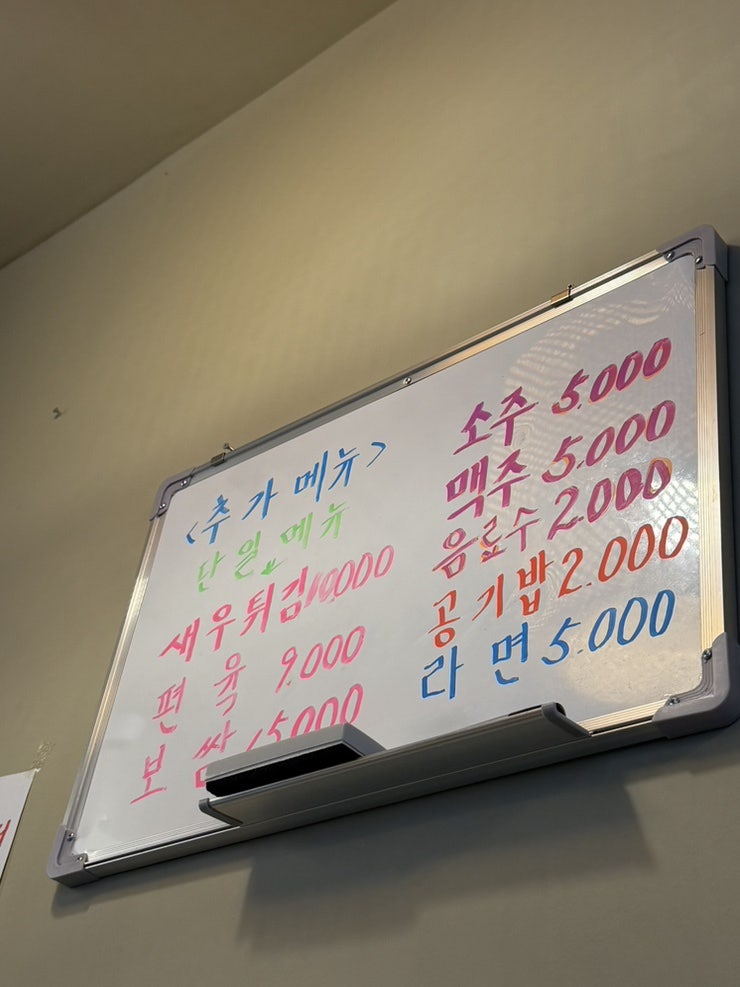 <추가메뉴>
단일메뉴
새우튀김 10,000
편육 9.000
보쌈 15000
소주 5.000
맥주 5.000
음료수 2.000
공기밥 2.000
라면 5.000